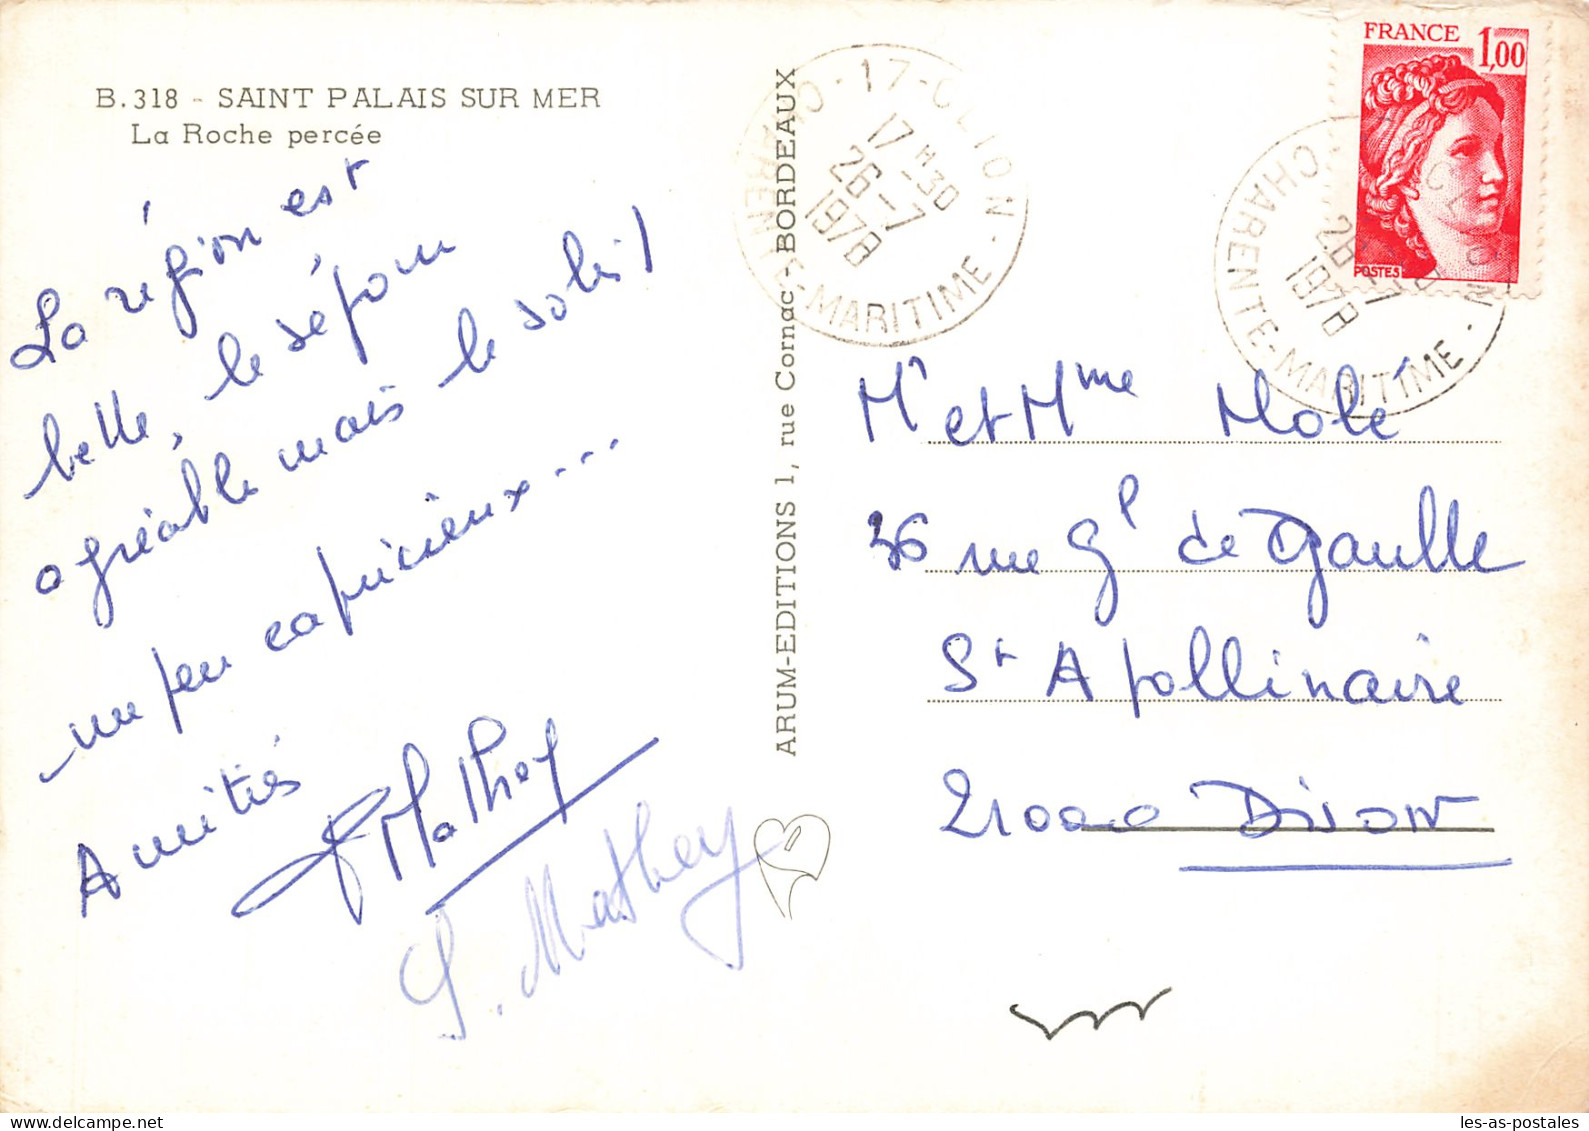 B.318 - SAINT PALAIS SUR MER
La Roche percée
La région est
belle, le séjour
agréable mais le soleil
un peu capricieux...
Amitiés
Mathey
S. Mathey
ARUM-EDITIONS 1, rue Cornac - BORDEAUX
17-CLION
17 H 30
26-7
1978
CHARENTE-MARITIME
FRANCE 1,00
POSTES
CLION
26-7
1978
CHARENTE-MARITIME
Mr et Mme Molé
36 rue Gl de Gaulle
St Apollinaire
21000 Dijon
les-as-postales